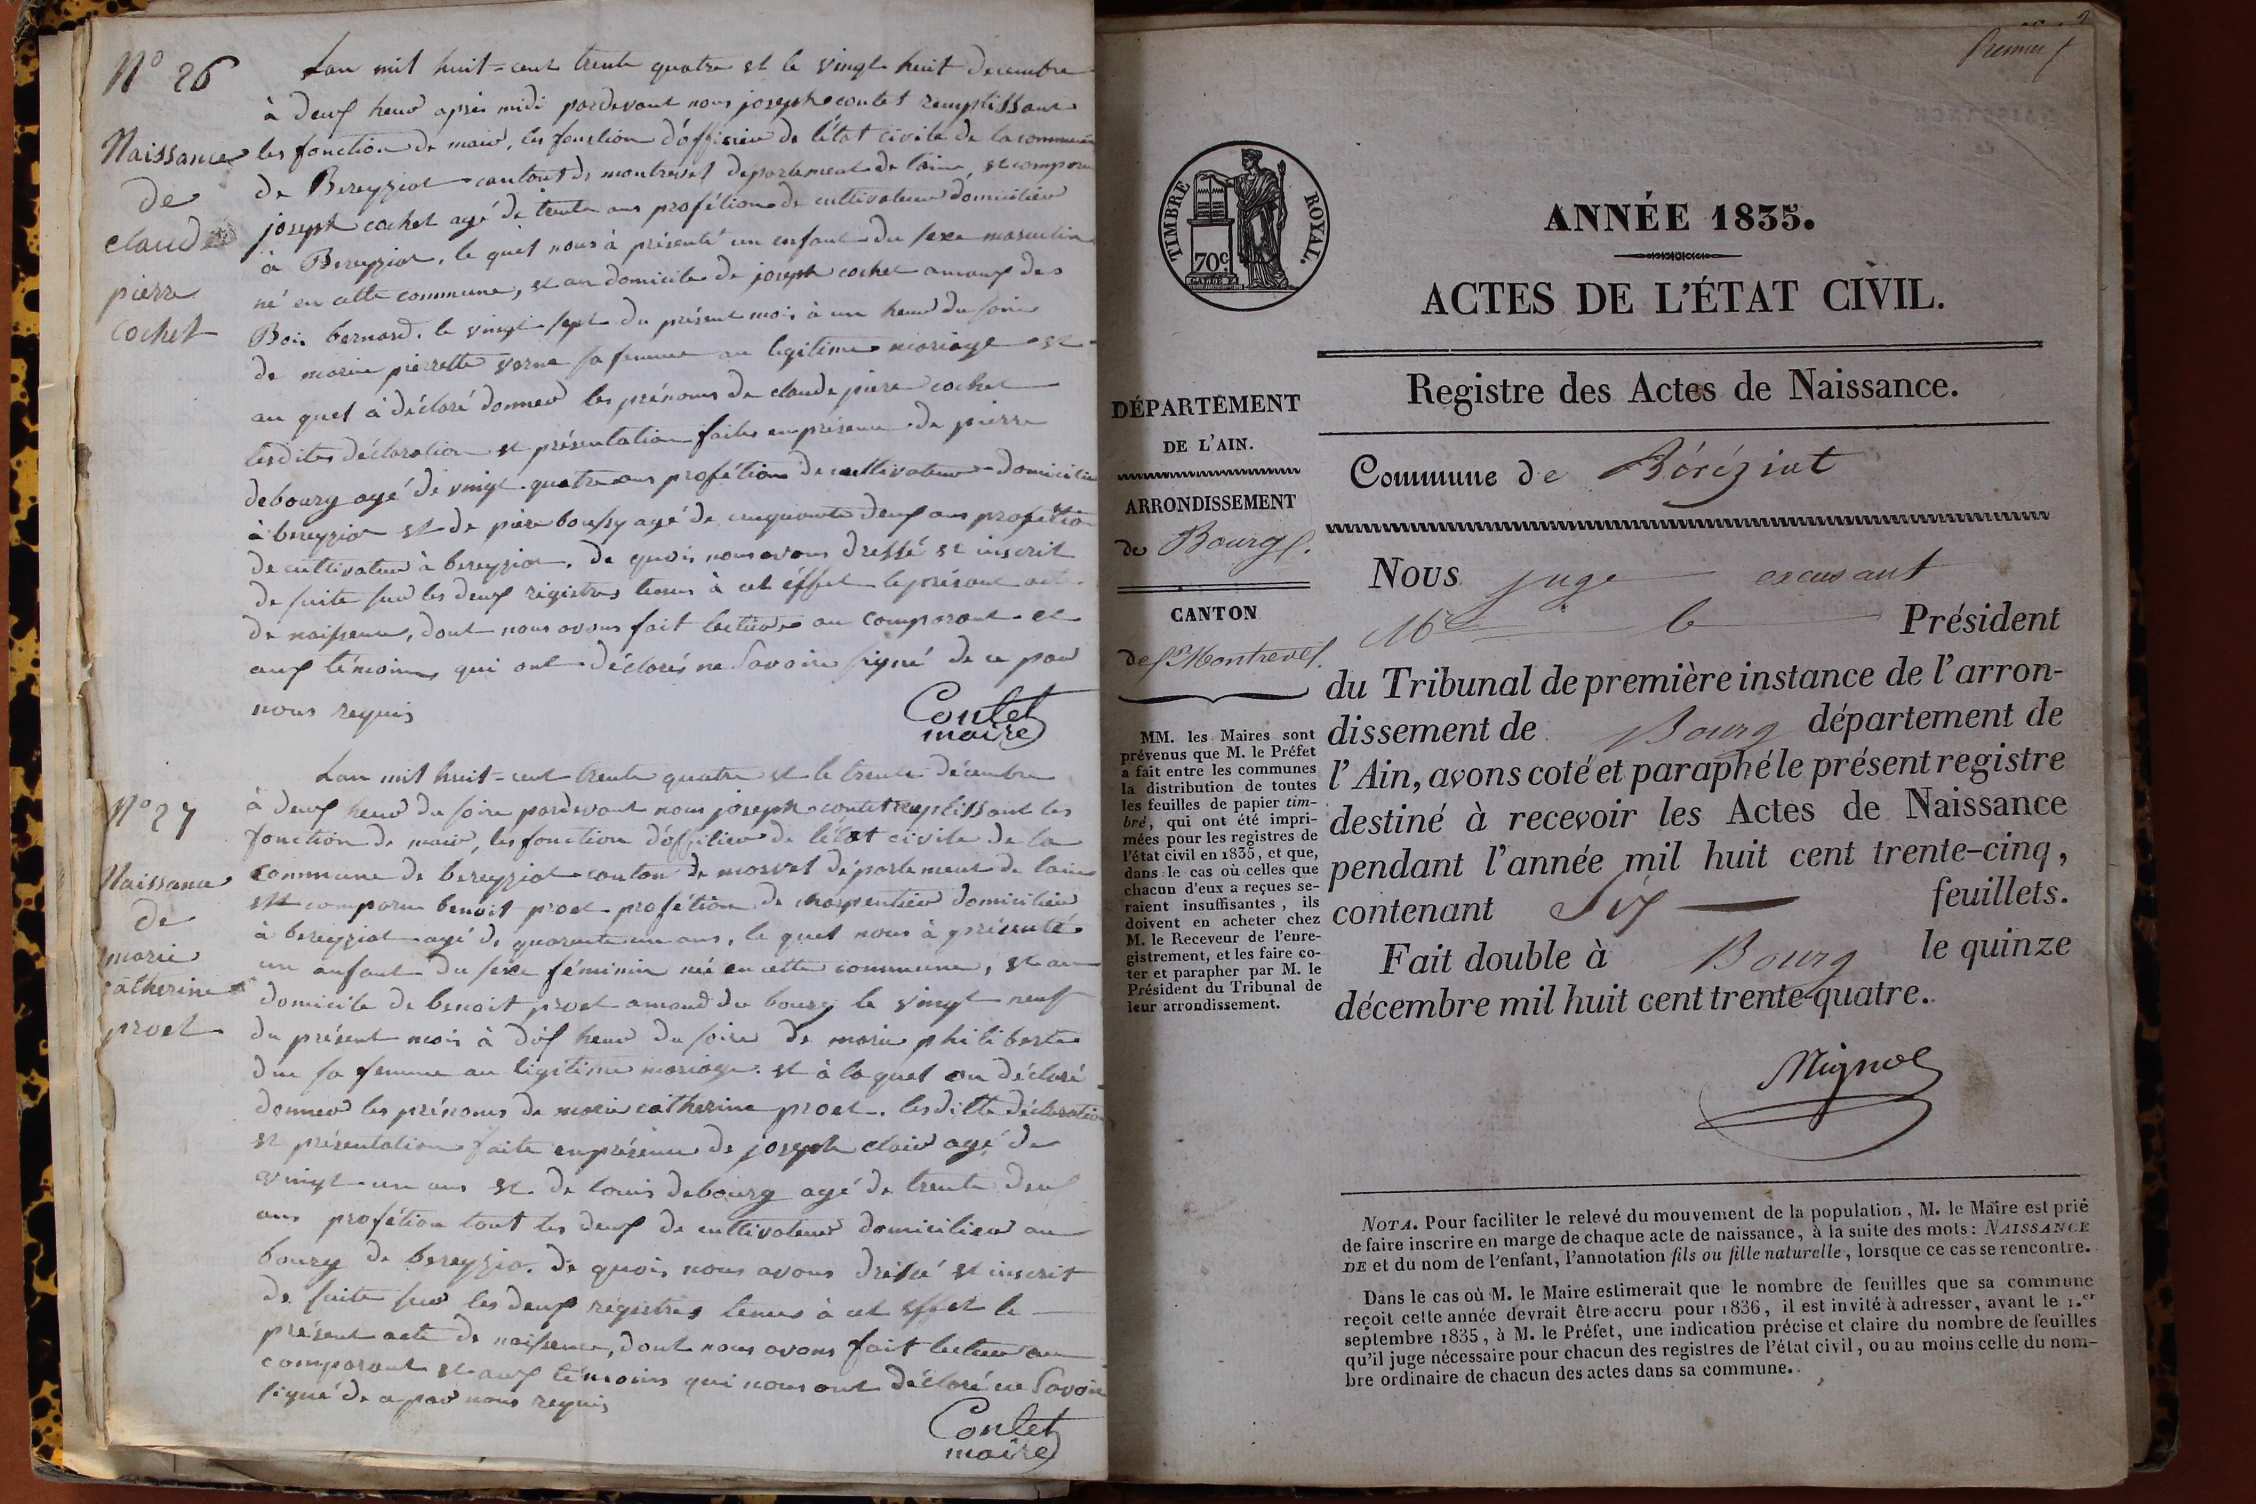 N° 26
Naissance
de
claude
pierre
cochet
Lan mil huit=cent trente quatre et le vingt huit decembre
à deux heur après midi pardevant nous joseph contet remplissant
les fonction de mair, les fonction d'officier de l'état civile de la commune
de Bereyziat canton de montrevel departement de lain, et comparu
joseph cochet agé de trente ans profétion de cultivateur domicilier
à Bereyziat, le quel nous à présenté un enfant du sexe masculin
né en cette commune, et au domicile de joseph cochet amaux des
Bois bernard, le vingt sept du présent mois à un heur du soire
de marie pierrette verne sa femme au legitime mariage et
au quel à déclaré donner les prénoms de claude piere cochet
lesdites déclaration et présentation faites en présence de pierre
debourg agé de vingt quatre ans profétion de cultivateur domicilier
à bereyziat et de piere boussy agé de cinquante deux ans profétion
de cultivateur à bereyziat, de quois nous avons dressé et inscrit
de suite sur les deux registres tenus à cet éffet le présant acte
de naissence, dont nous avons fait lecture au comparant et
aux témoins qui ont déclarés ne savoire signé de ce par
nous requis
Contet
maire
N° 27
Naissance
de
marie
catherine
proet
Lan mil huit=cent trente quatre et le trente décembre
à deux heur du soire pardevant nous joseph contet remplissant les
fonction de mair, les fonction d'officier de l'état civile de la
commune de bereyziat canton de departement de lain
et comparu benoit proet profétion de charpentier domicilier
à bereyziat agé de quarante un ans, le quel nous à présenté
un anfant du sexe féminin née en cette commune, et au
domicile de benoit proet amaud du bourg le vingt neuf
du présent mois à dix heur du soire de marie philiberte
duc sa femme au ligitime mariage. et à laquel on déclaré
donner les prénoms de marie catherine proet. lesditte déclaration
et présentation faite en présence de joseph clair agé de
vingt un ans et de louis debourg agé de trente deux
ans profétion tout les deux de cultivateur domicilier au
bourg de bereyzia. de quois nous avons dréssé et inscrit
de suite sur les deux régistres tenus à cet effet le
présent acte de naissence, dont nous avons fait lecture au
comparant et aux témoins qui nous ont déclaré ne Savoir
signé de a par nous requis
Contet
maire
Premier
TIMBRE ROYAL.
70c
ANNÉE 1835.
ACTES DE L'ÉTAT CIVIL.
Registre des Actes de Naissance.
DÉPARTEMENT
DE L'AIN.
ARRONDISSEMENT
de Bourg.
CANTON
de Montrevel.
MM. les Maires sont
prévenus que M. le Préfet
a fait entre les communes
la distribution de toutes
les feuilles de papier tim-
bré, qui ont été impri-
mées pour les registres de
l'état civil en 1835, et que,
dans le cas où celles que
chacun d'eux a reçues se-
raient insuffisantes, ils
doivent en acheter chez
M. le Receveur de l'enre-
gistrement, et les faire co-
ter et parapher par M. le
Président du Tribunal de
leur arrondissement.
Commune de Béréziat
Nous juge excusant
Mr le Président
du Tribunal de première instance de l'arron-
dissement de Bourg département de
l'Ain, avons coté et paraphé le présent registre
destiné à recevoir les Actes de Naissance
pendant l'année mil huit cent trente-cinq,
contenant Six feuillets.
Fait double à Bourg le quinze
décembre mil huit cent trente-quatre.
NOTA. Pour faciliter le relevé du mouvement de la population, M. le Maire est prié
de faire inscrire en marge de chaque acte de naissance, à la suite des mots: NAISSANCE
DE et du nom de l'enfant, l'annotation fils ou fille naturelle, lorsque ce cas se rencontre.
Dans le cas où M. le Maire estimerait que le nombre de feuilles que sa commune
reçoit cette année devrait être accru pour 1836, il est invité à adresser, avant le 1.er
septembre 1835, à M. le Préfet, une indication précise et claire du nombre de feuilles
qu'il juge nécessaire pour chacun des registres de l'état civil, ou au moins celle du nom-
bre ordinaire de chacun des actes dans sa commune.